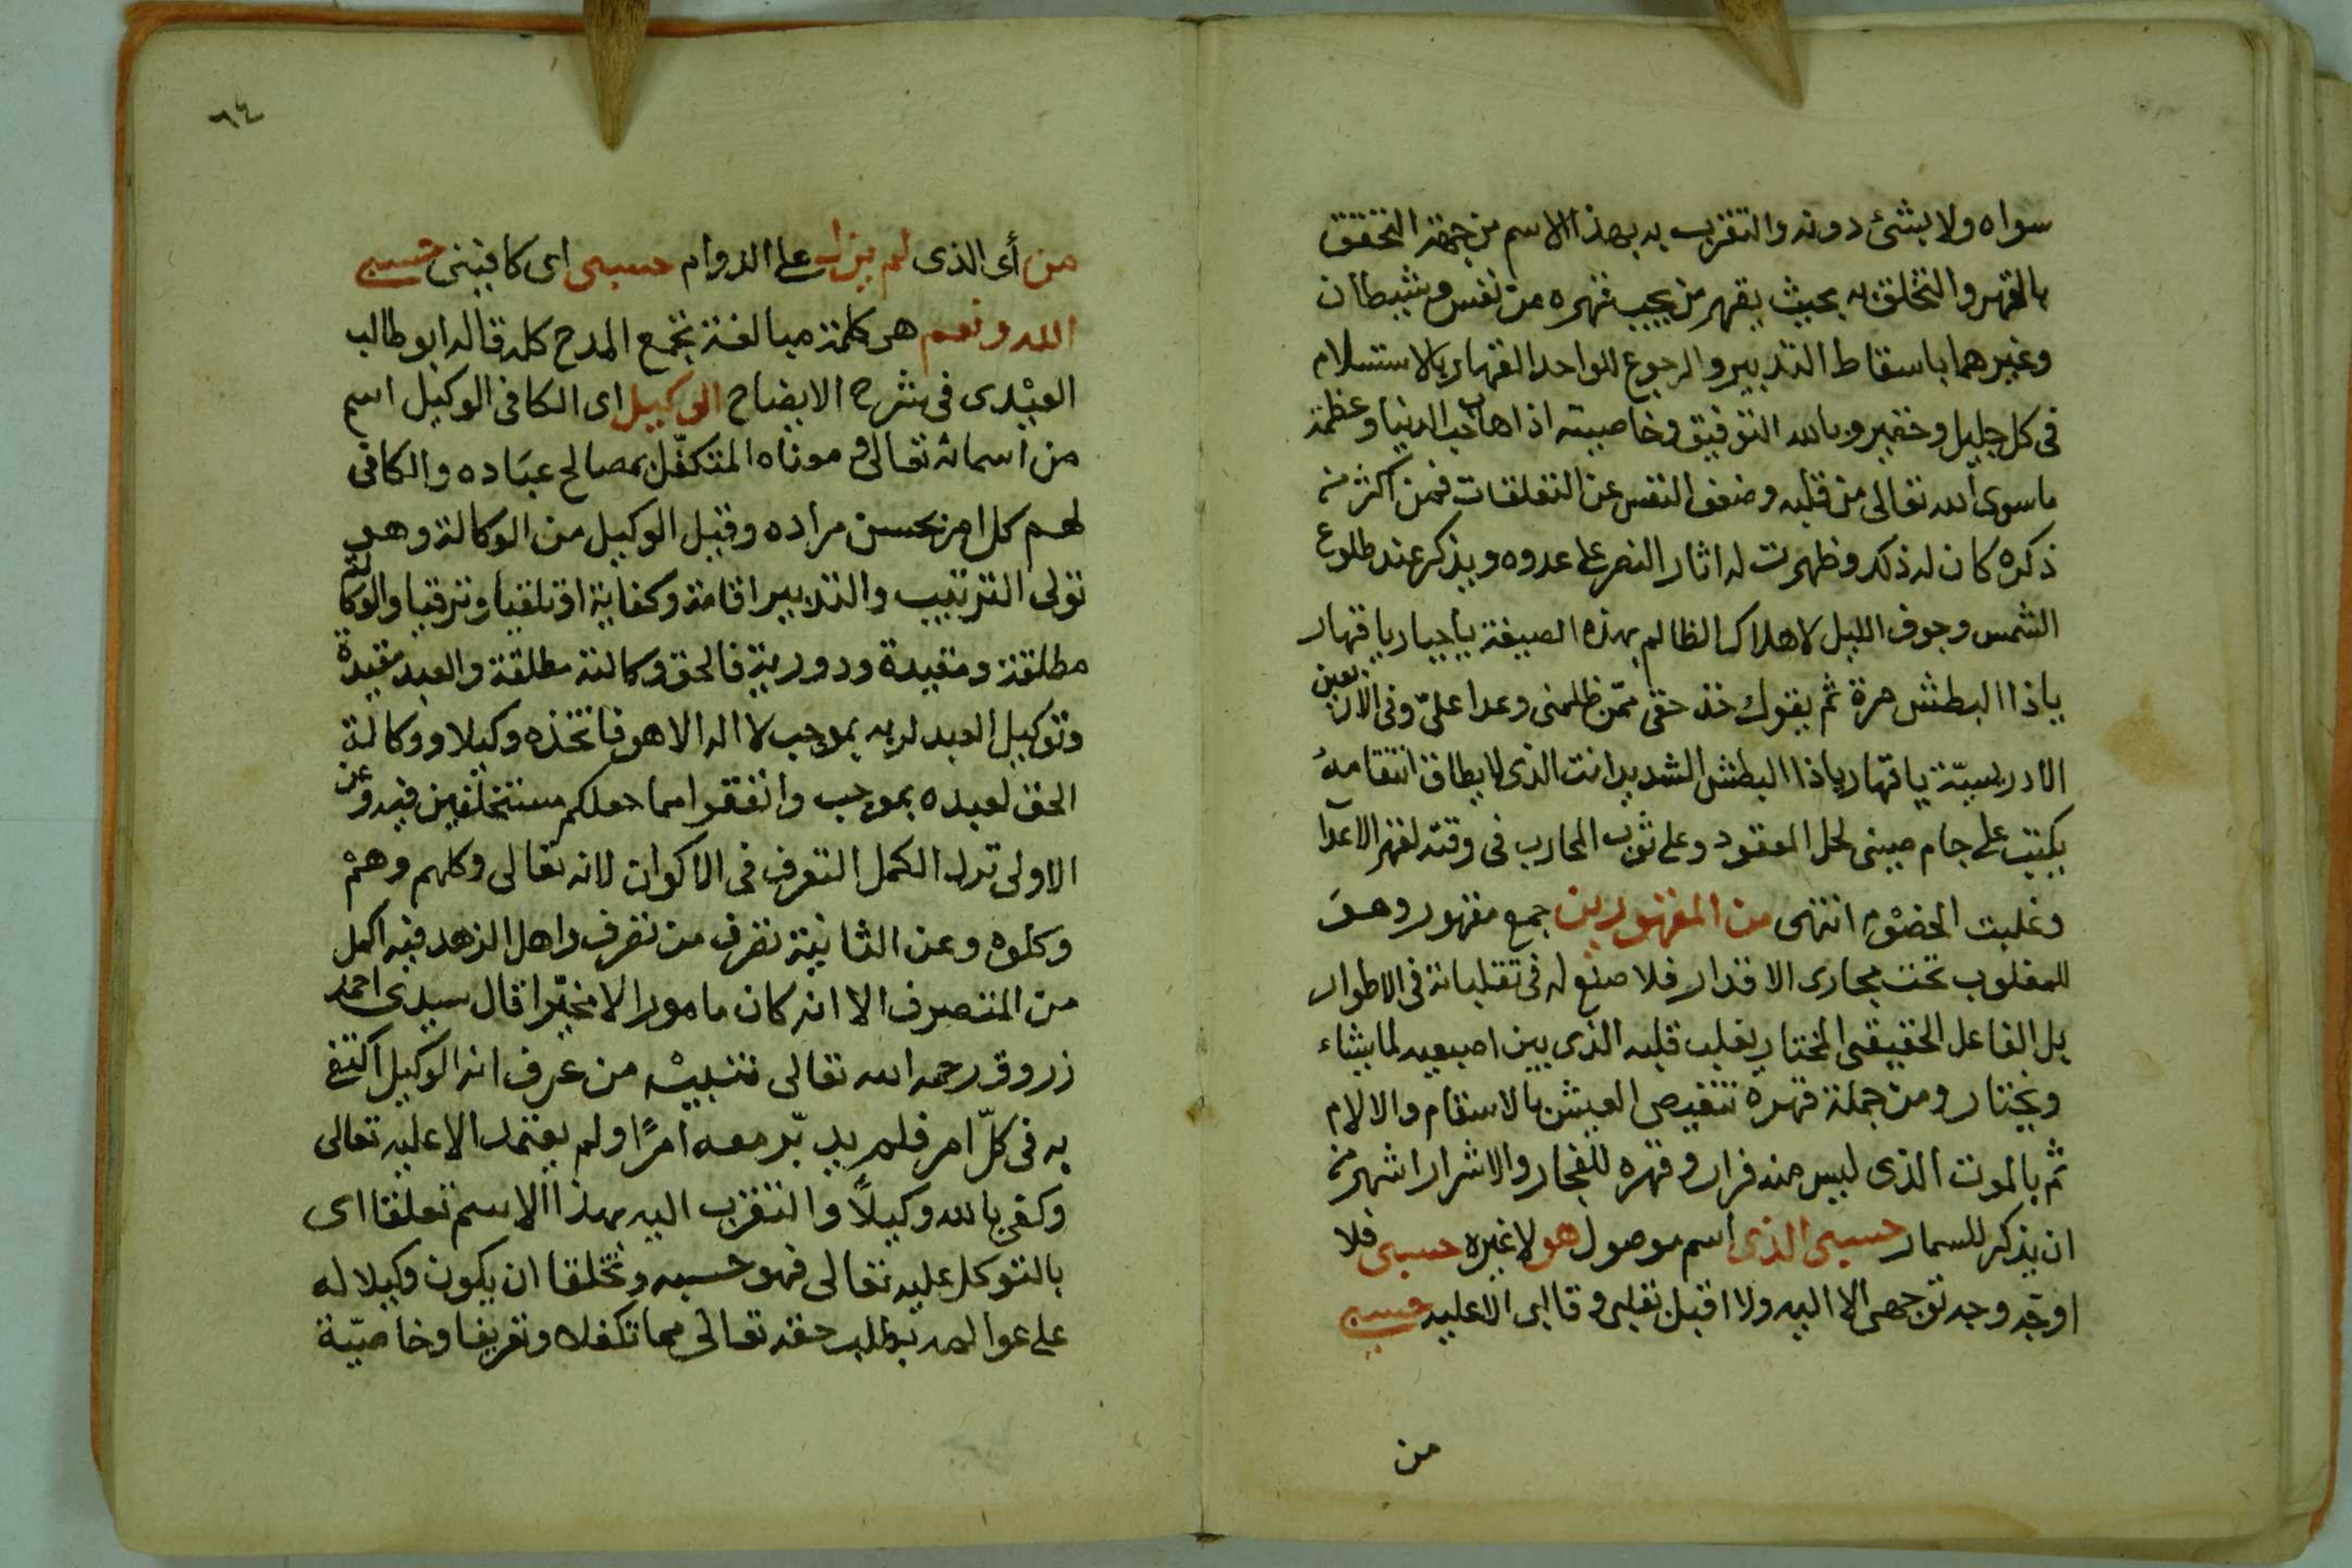 سواه ولا بشئ دونه والتقرب به بهذا الاسم من جهة التحقق
بالقهر والتخلق به بحيث يقهر من يجب قهره من نفس وشيطان
وغيرهما باسقاط التدبير والرجوع للواحد القهار بالاستسلام
فى كل جليل وحقير وبالله التوفيق وخاصيته اذهاب حب الدنيا وعظمة
ما سوى الله تعالى من قلبه وضعف النفس عن التعلقات فمن اكثر من
ذكره كان له ذلك وظهرت له اثار النصر على عدوه ويذكر عند طلوع
الشمس وجوف الليل لاهلاك الظالم بهذه الصيغة يا جبار يا قهار
ياذا البطش مرة ثم يقول خذ حقى ممّن ظلمنى وعدا علىّ وفى الاربعين
الادريسيّة يا قهار ياذا البطش الشديد انت الذى لا يطاق انتقامهُ
يكتب على جام صينى لحل المعقود وعلى ثوب المحارب فى وقته لقهر الاعدآ
وغلبت الخصوم انتهى من المقهورين جمع مقهور وهو
المغلوب تحت مجارى الاقدار فلا صنع له فى تقلباته فى الاطوار
بل الفاعل الحقيقى المختار يقلب قلبه الذى بين اصبعيه لما يشاء
ويختار ومن جملة قهره تنغيص العيش بالاسقام والالام
ثم بالموت الذى ليس منه فرار وقهره للفجار والاشرار اشهر من
ان يذكر للسمار حسبى الذى اسم موصول هو لا غيره حسبى فلا
اوجّه وجه توجهى الا اليه ولا اقبل بقلبى وقالبى الا عليه حسبى
من
٦٤
من أى الذى لم يزل على الدوام حسبى اى كافينى حسبى
الله ونعم هى كلمة مبالغة تجمع المدح كله قاله ابو طالب
العبْدى فى شرح الايضاح الوكيل اى الكافى الوكيل اسم
من اسمائه تعالى ومعناه المتكفّل بمصالح عباده والكافى
لهم كل امر بحسن مراده وقيل الوكيل من الوكالة وهو
تولى الترتيب والتدبير اقامة وكفاية اوتلقيا وترقيا والوكالة
مطلقة ومقيدة ودورية فالحق وكالته مطلقة والعبد مقيدة
وتوكيل العبد لربه بموجب لا اله الا هو فاتخذه وكيلا ووكالة
الحق لعبده بموجب وانفقوا مما جعلكم مستخلفين فيه وعن
الاولى ترك الكمل التصرف فى الاكوان لانه تعالى وكلهم وهم
وكلوه وعن الثانية تصرف من تصرف واهل الزهد فيه اكمل
من المتصرف الا انه كان مامورا لا مخيّرا قال سيدى احمد
زروق رحمه الله تعالى تنبيْه من عرف انه الوكيل اكتفى
به فى كلّ امر فلم يدبّر معه امرًا ولم يعتمد الا عليه تعالى
وكفى بالله وكيلًا والتقرب اليه بهذا الاسم تعلقا اى
بالتوكل عليه تعالى فهو حسبه وتخلقا ان يكون وكيلا له
على عوالمه بطلب حقه تعالى مما تكفلاه وتعريفا وخاصيّة